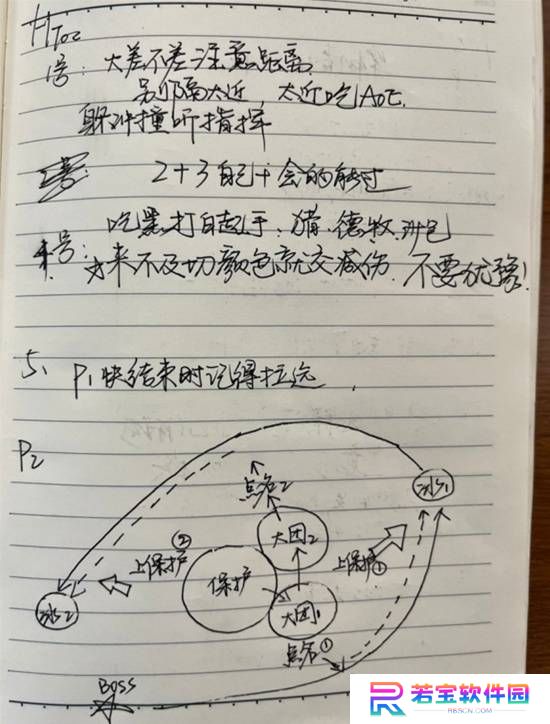 HToc
1号: 大差不差注意距离
别隔太近, 太近吃AOE.
躲冲撞听指挥
2+3 自己十会的能过
吃黑打白起手, 猎、德、牧、
4号: 来不及切颜色就交减伤. 不要犹豫!
5、P1快结束时记得拉远
P2
点名2
冰1
大团2
上保护②
保护
上保护①
冰2
大团1
点名①
BOSS
若宝软件园
RBSCN.COM